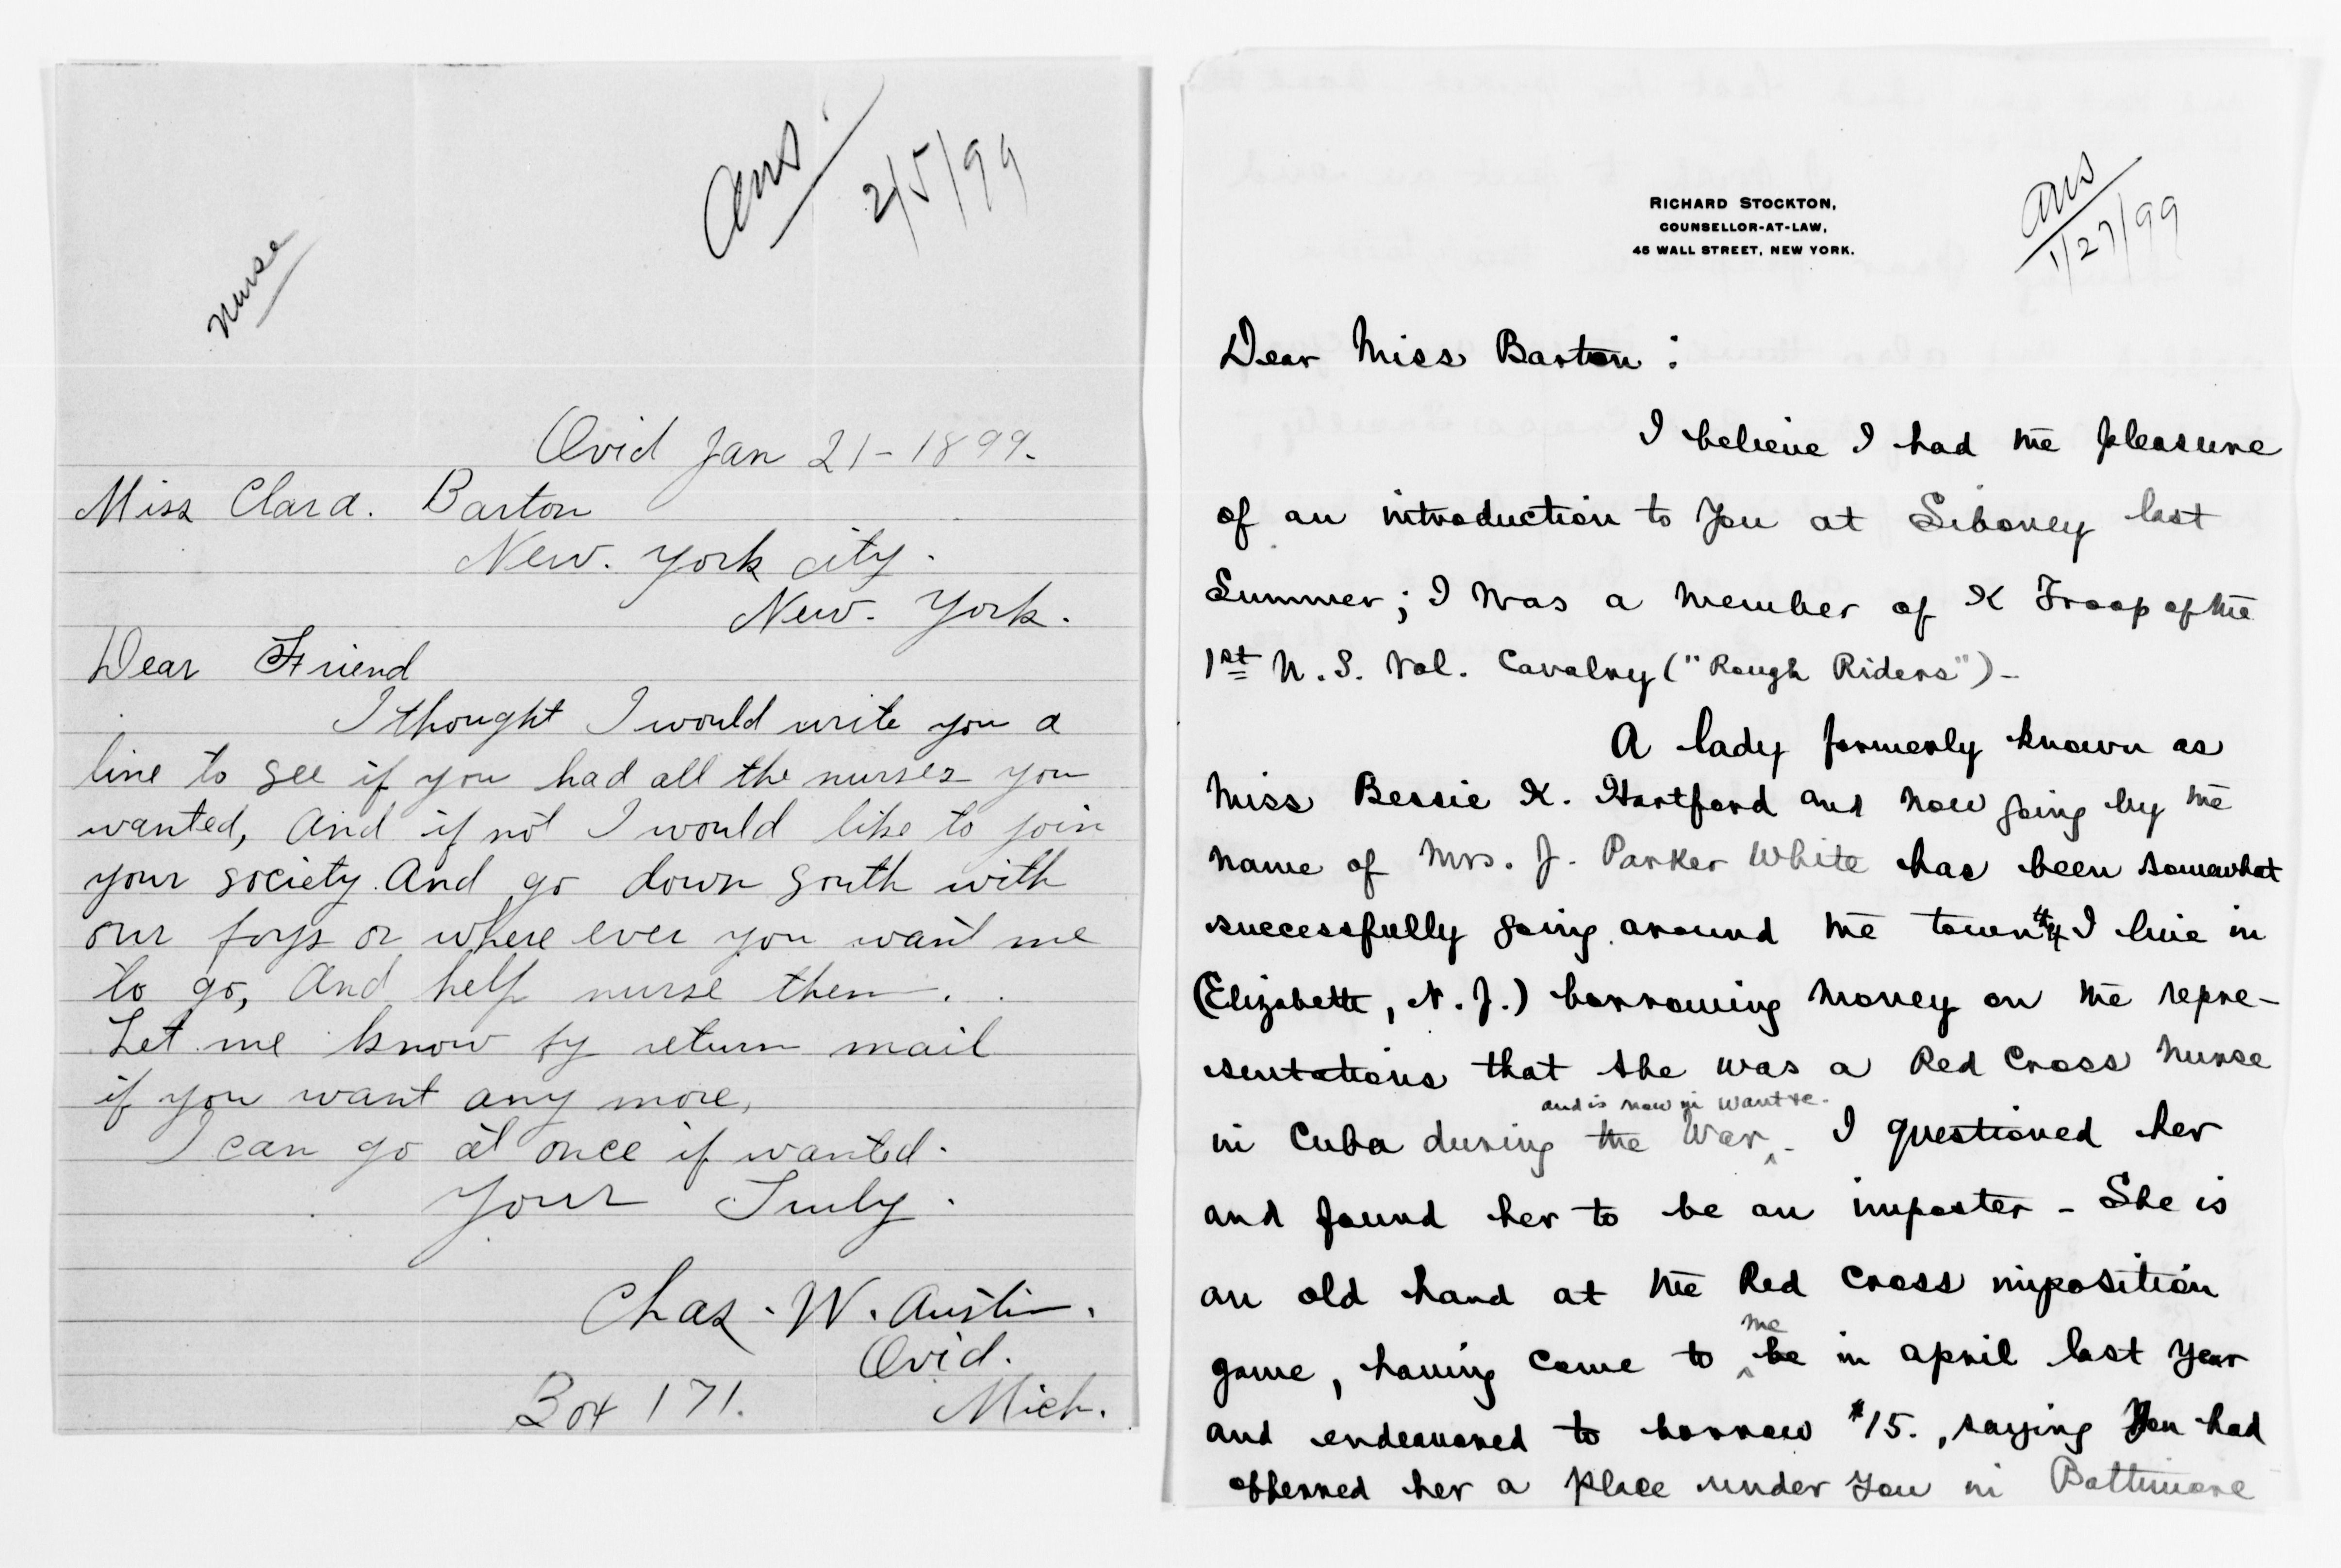 nurse
Ans.
2/5/99
Ovid Jan 21-1899.
Miss Clara. Barton
New. York city.
New. York.
Dear Friend
I thought I would write you a
line to see if you had all the nurses you
wanted, And if not I would like to join
your society. And go down south with
our foys or where ever you want me
to go, And help nurse them.
Let me know by return mail
if you want any more,
I can go at once if wanted.
Your Truly.
Chas. W. Austin.
Ovid.
Box 171. Mich.
RICHARD STOCKTON,
COUNSELLOR-AT-LAW,
45 WALL STREET, NEW YORK.
Ans
1/27/99
Dear Miss Barton:
I believe I had the pleasure
of an introduction to you at Siboney last
Summer; I was a member of K Troop of the
1st U.S. Vol. Cavalry ("Rough Riders")-
A lady formerly known as
Miss Bessie K. Hartford and now going by the
name of Mrs. J. Parker White has been somewhat
successfully going around the town I live in
(Elizabeth, N.J.) borrowing money on the repre-
sentations that she was a Red Cross Nurse
and is now in want &c.
in Cuba during the War^- I questioned her
and found her to be an imposter - She is
an old hand at the Red Cross imposition
me
game, having come to ^ be in april last year
and endeavored to borrow $15., saying you had
offered her a place under you in Baltimore